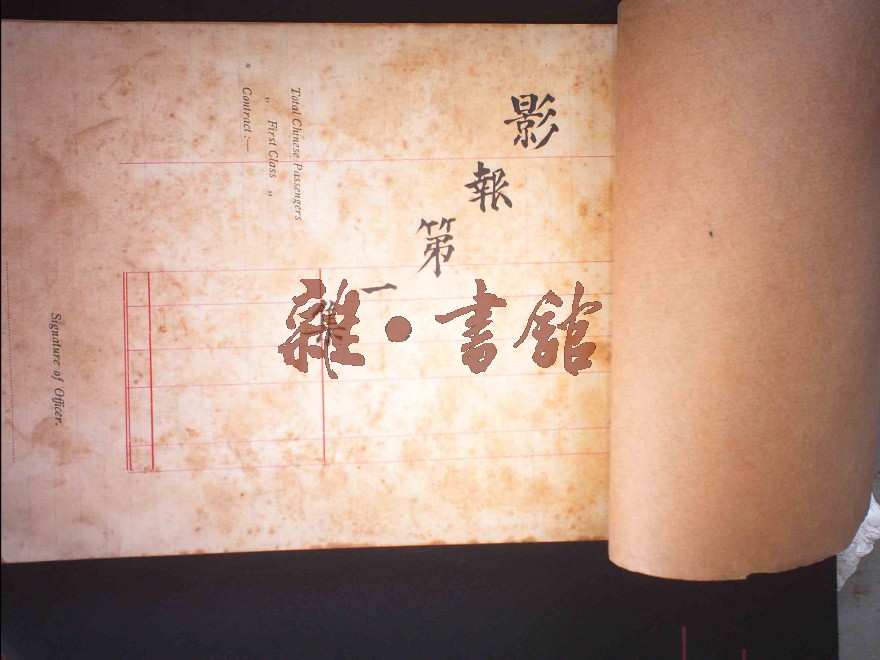 影報第一集
雜·書館
Total Chinese Passengers
„ First Class „
Contract :—
Signature of Officer.